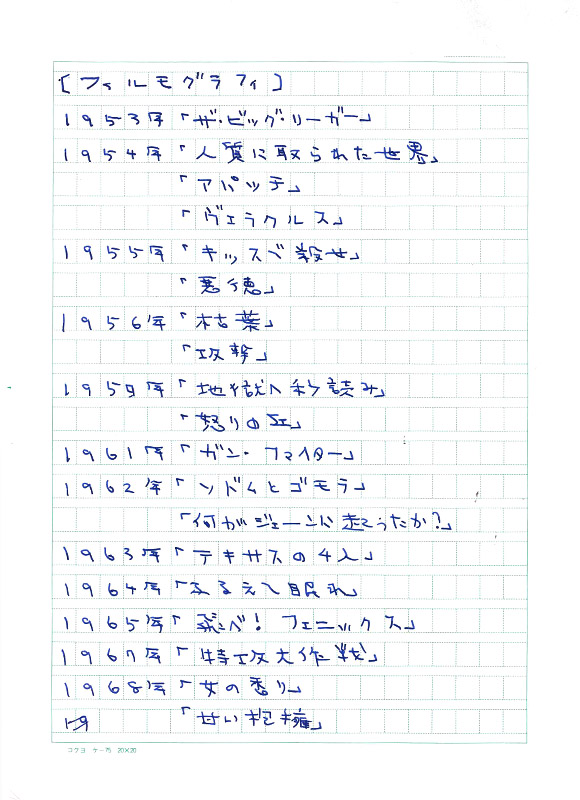 [フィルモグラフィ]
1953年「ザ・ビッグ・リーガー」
1954年「人質に取られた世界」
「アパッチ」
「ヴェラクルス」
1955年「キッスで殺せ」
「悪徳」
1956年「枯葉」
「攻撃」
1959年「地獄へ秒読み」
「怒りの丘」
1961年「ガン・ファイター」
1962年「ソドムとゴモラ」
「何がジェーンに起こったか?」
1963年「テキサスの4人」
1964年「ふるえて眠れ」
1965年「飛べ! フェニックス」
1967年「特攻大作戦」
1968年「女の香り」
「甘い抱擁」
コクヨ ケー75 20×20